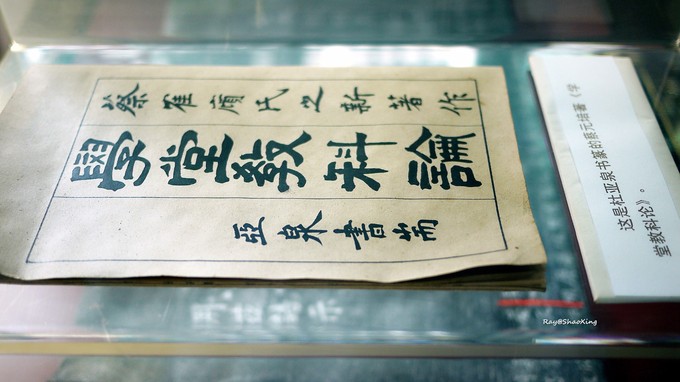 蔡隺廎氏之新著作
學堂教科論
亞泉書耑
这是杜亚泉书篆的蔡元培著《学
堂教科论》。
Ray@ShaoXing